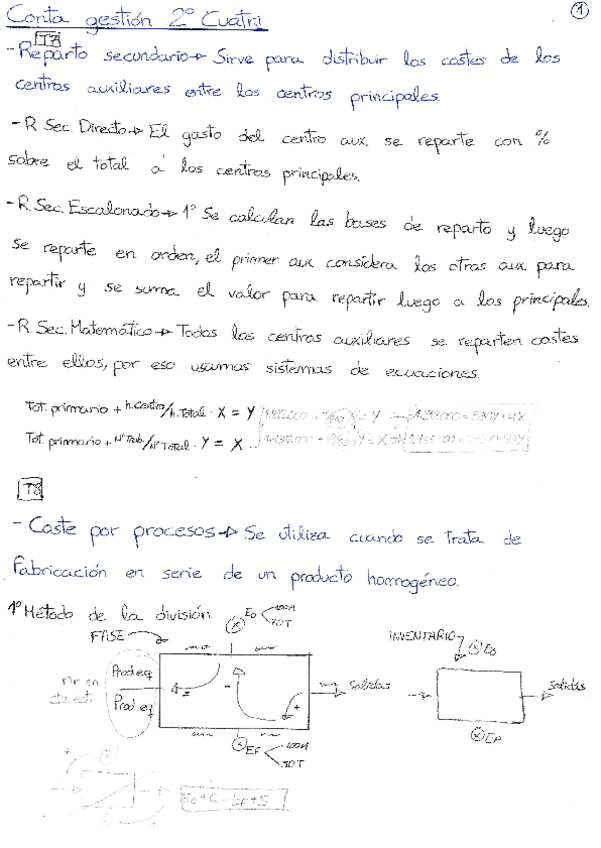 Conta gestión 2º Cuatri
1
T7
- Reparto secundario → Sirve para distribuir los costes de los
centros auxiliares entre los centros principales.
- R. Sec. Directo → El gasto del centro aux. se reparte con %
sobre el total a los centros principales.
- R. Sec. Escalonado → 1º Se calculan las bases de reparto y luego
se reparte en orden, el primer aux considera los otros aux para
repartir y se suma el valor para repartir luego a los principales.
- R. Sec. Matemático → Todos los centros auxiliares se reparten costes
entre ellos, por eso usamos sistemas de ecuaciones.
Tot. primario + h. Centro/h. Total · X = Y
Tot. primario + Nº Trab/Nº Total · Y = X
T8
- Coste por procesos → Se utiliza cuando se trata de
Fabricación en serie de un producto homogéneo.
1º Método de la división
FASE
Eo
TOT
INVENTARIO
Eo
Prod eq
Prod eq
Salidas
Salidas
EF
TOT
EF